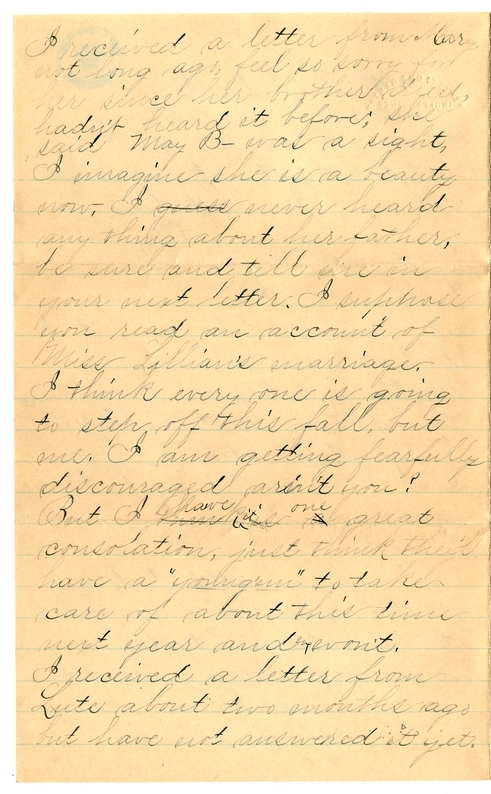 I received a letter from Mary
not long ago, feel so sorry for
her since her brother died,
hadn't heard it before; she
said May B- was a sight,
I imagine she is a beauty
now. I guess never heard
any thing about her father,
be sure and tell me in
your next letter. I suphose
you read an account of
Miss Lillian's marriage.
I think every one is going
to step off this fall, but
me. I am getting fearfully
discouraged arsn't you?
But I have one great
consolation, just think they'll
have a "youngun" to take
care of about this time
next year and I won't.
I received a letter from
Lute about two months ago
but have not answered it yet.